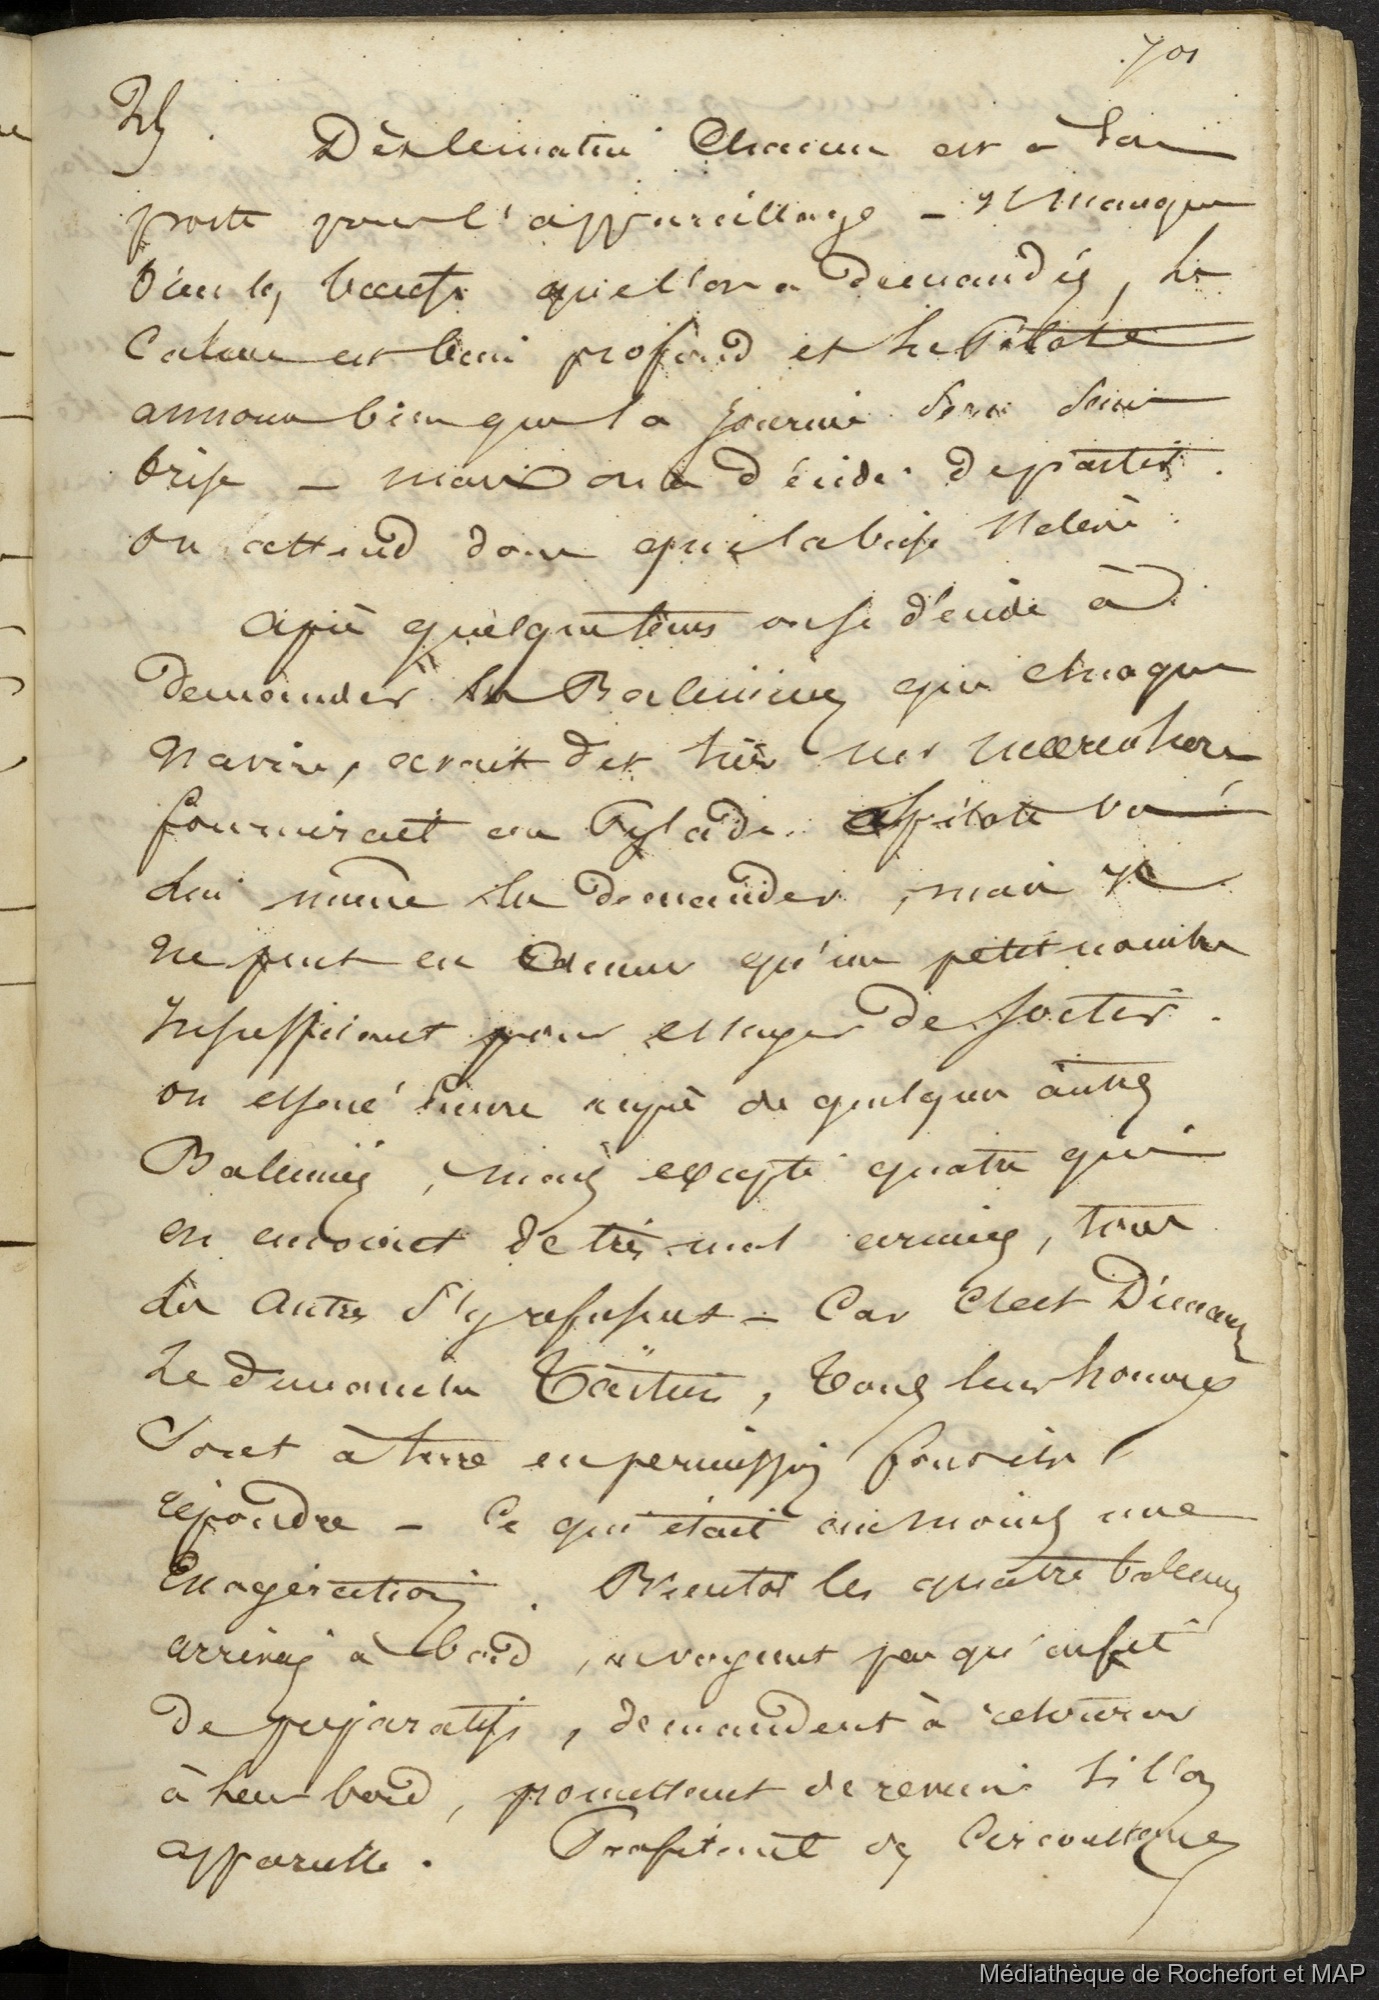 701
Dès le matin chacun est à son
poste pour l'appareillage – Il manque
bien les bœufs que l'on a demandés, le
calme est bien profond et le Pilote
annonce bien que la journée sera sans
brise – mais on a décidé de partir.
on attend donc que la brise s'élève.
Après quelque tems on se décide à
demander les Baleinières que chaque
navire, avait dit hier
fournirait au Pylade. Le pilote va
lui même les demander, mais il
ne peut en amener qu'un petit nombre
insuffisant pour essayer de sortir.
on essaie encore auprès de quelques autres
Baleiniers, mais excepté quatre qui
en envoient de très mal armées, tous
les autres s'y refusent – Car c'est Dimanche
Le dimanche Taïtien, tous leurs hommes
sont à terre en permission font-ils
répondre – Ce qui était au moins une
Exagération. Bientôt les quatre baleinières
arrivées à bord, ne voyant pas qu'on fit
de préparatifs, demandent à retourner
à leur bord, promettant de revenir si l'on
appareille. Profitant des circonstances
Médiathèque de Rochefort et MAP